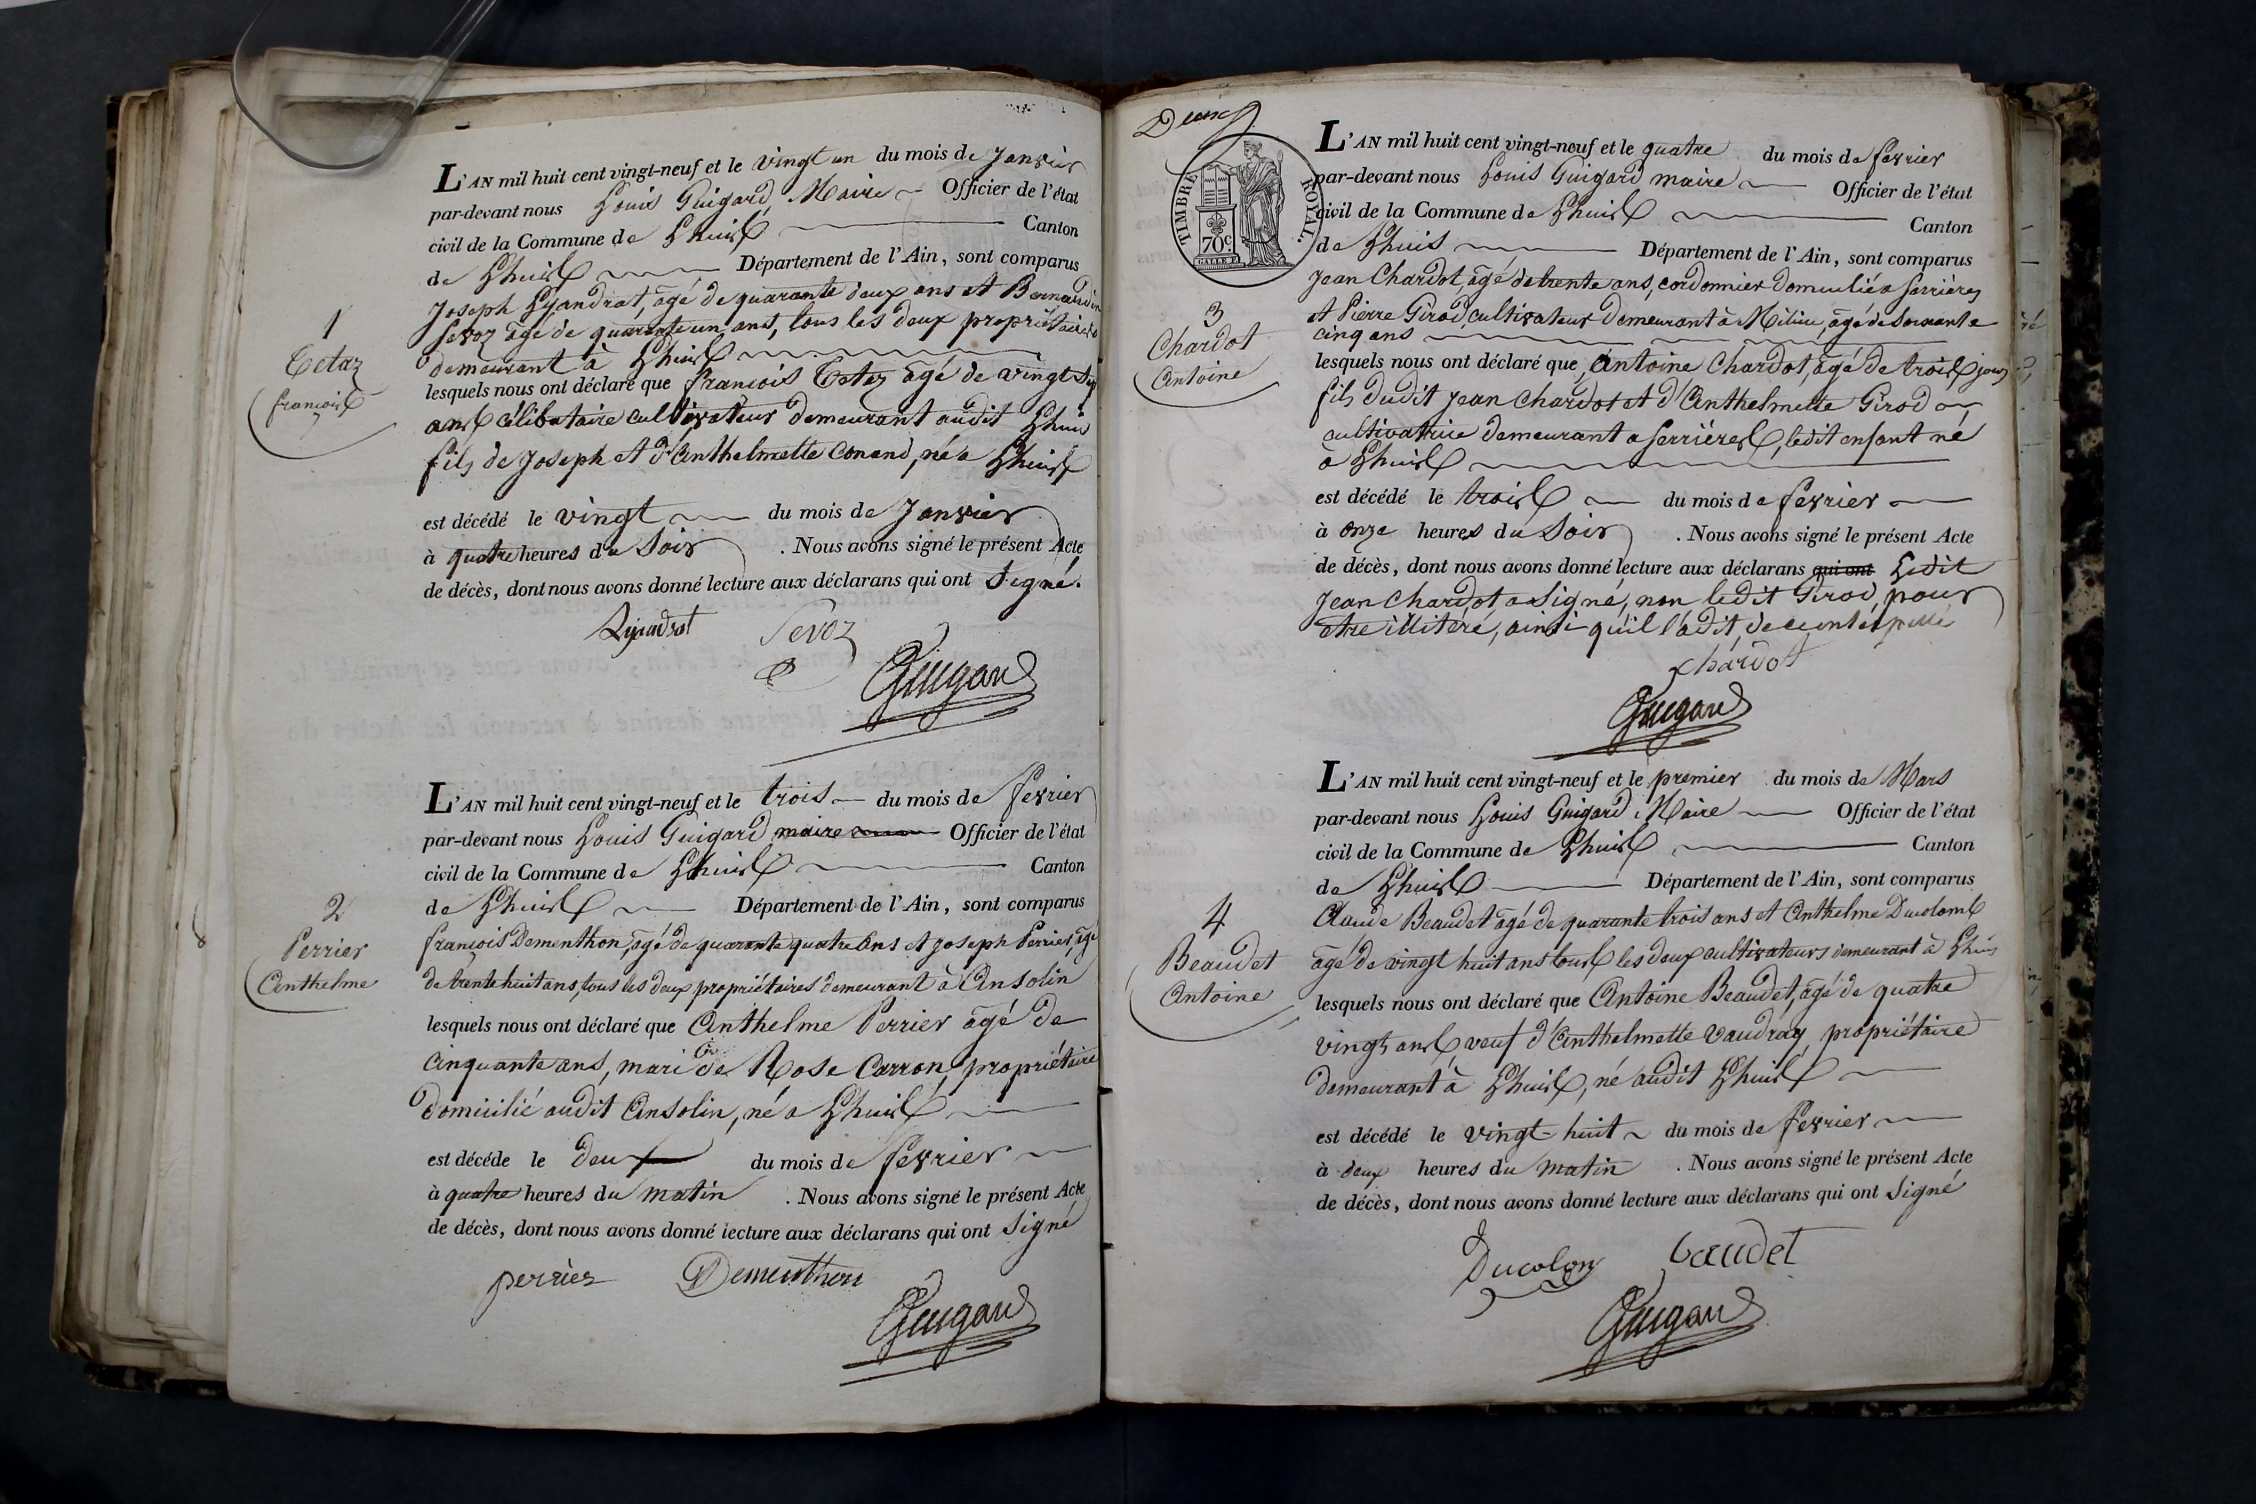 L'AN mil huit cent vingt-neuf et le vingt un du mois de Janvier
par-devant nous Louis Guigard, Maire Officier de l'état
civil de la Commune de Lhuis Canton
de Lhuis Département de l'Ain, sont comparus
Joseph Lyandrat, âgé de quarante deux ans et Bernardin
Sevoz âgé de quarante un ans, tous les deux propriétaires
demeurant à Lhuis
1
Tetaz
françois
lesquels nous ont déclaré que françois Tetaz âgé de vingt sep
ans célibataire cultivateur demeurant audit Lhuis
fils de Joseph et d'Anthelmette Conand, né a Lhuis
est décédé le vingt du mois de Janvier
à quatre heures du Soir . Nous avons signé le présent Acte
de décès, dont nous avons donné lecture aux déclarans qui ont signé.
Lyandrat Sevoz
Guigard
L'AN mil huit cent vingt-neuf et le trois du mois de fevrier
par-devant nous Louis Guigard maire Officier de l'état
civil de la Commune de Lhuis Canton
de Lhuis Département de l'Ain, sont comparus
2
Perrier
Anthelme
françois Dementhon, âgé de quarante quatre ans et Joseph Perrier, âgé
de trente huit ans, tous les deux propriétaires demeurant à Ansolin
lesquels nous ont déclaré que Anthelme Perrier âgé de
cinquante ans, mari de Rose Carron, propriétaire
domicilié audit Ansolin, né a Lhuis
est décéde le deux du mois de fevrier
à quatre heures du matin . Nous avons signé le présent Acte
de décès, dont nous avons donné lecture aux déclarans qui ont signé
perrier Dementhon
Guigard
Deux
TIMBRE ROYAL.
70c
L'AN mil huit cent vingt-neuf et le quatre du mois de fevrier
par-devant nous Louis Guigard maire Officier de l'état
civil de la Commune de Lhuis Canton
de Lhuis Département de l'Ain, sont comparus
3
Chardot
Antoine
Jean Chardot, âgé de trente ans, cordonnier domicilié a Serrières
et Pierre Girod, cultivateur demeurant à Milieu, âgé de soixante
cinq ans
lesquels nous ont déclaré que Antoine Chardot, âgé de trois jours
fils dudit Jean Chardot et d'Anthelmette Girod
cultivatrice demeurant a Serrières, ledit enfant né
à Lhuis
est décédé le trois du mois de fevrier
à onze heures du Soir . Nous avons signé le présent Acte
de décès, dont nous avons donné lecture aux déclarans qui ont Ledit
Jean Chardot a signé, non ledit Girod, pour
etre illitéré, ainsi qu'il l'a dit, de ce intérpellé
chardot
Guigard
L'AN mil huit cent vingt-neuf et le premier du mois de Mars
par-devant nous Louis Guigard Maire Officier de l'état
civil de la Commune de Lhuis Canton
de Lhuis Département de l'Ain, sont comparus
4
Beaudet
Antoine
Claude Beaudet âgé de quarante trois ans et Anthelme Ducolomb
âgé de vingt huit ans tous les deux cultivateurs demeurant à Lhuis
lesquels nous ont déclaré que Antoine Beaudet, âgé de quatre
vingts ans, veuf d'Anthelmette Vaudray, propriétaire
demeurant à Lhuis, né audit Lhuis
est décédé le vingt huit du mois de fevrier
à deux heures du matin . Nous avons signé le présent Acte
de décès, dont nous avons donné lecture aux déclarans qui ont signé
Ducolon baudet
Guigard